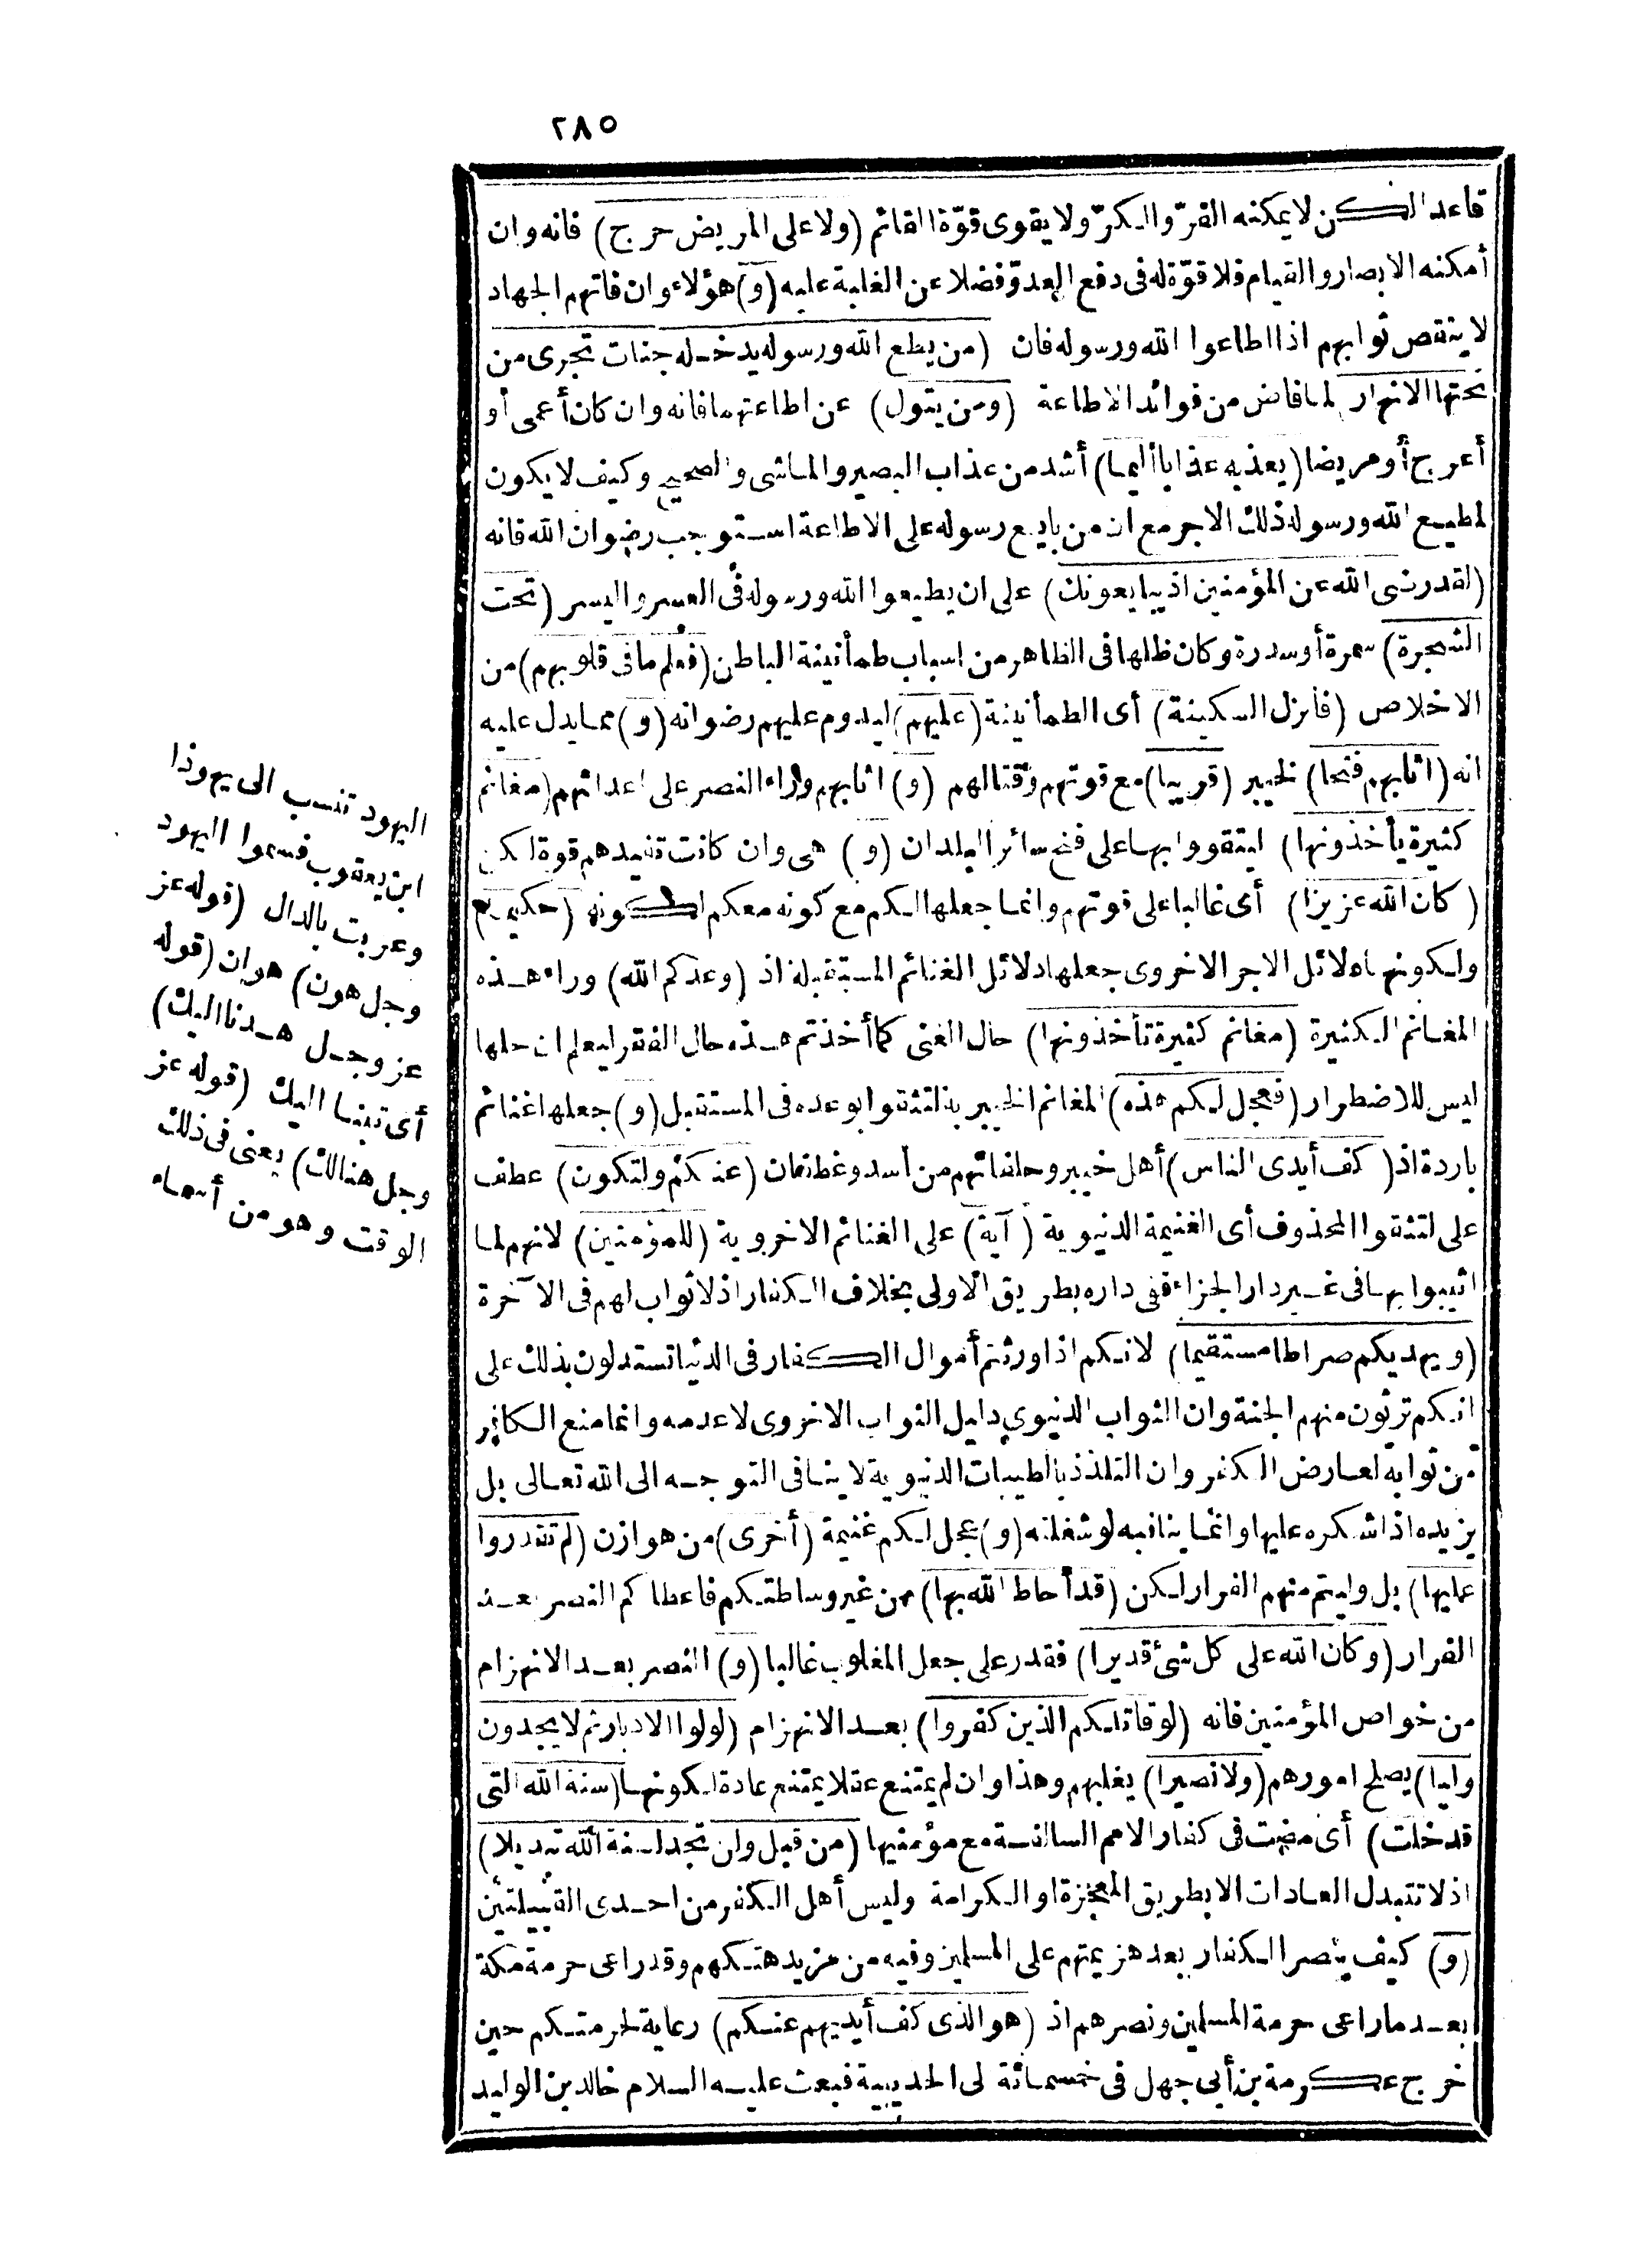 ٢٨٥
قاعد الكن لا يمكنه الفرّ والكرّ ولا يقوى قوّة القائم (ولا على المريض حرج) فانه وان
أمكنه الابصار والقيام فلا قوّة له فى دفع العدوّ فضلا عن الغلبة عليه (و) هؤلاء وان فاتهم الجهاد
لا ينتقص ثوابهم اذا اطاعوا الله ورسوله فان (من يطع الله ورسوله يدخله جنات تجرى من
تحتها الانهار) لما فاض من فوائد الاطاعة (ومن يتول) عن اطاعتهما فانه وان كان أعمى أو
أعرج أو مريضا (يعذبه عذابا أليما) أشد من عذاب البصير والماشى والصحيح وكيف لا يكون
لمطيع الله ورسوله ذلك الاجر مع ان من بايع رسوله على الاطاعة استوجب رضوان الله فانه
(لقد رضى الله عن المؤمنين اذ يبايعونك) على ان يطيعوا الله ورسوله فى العسر واليسر (تحت
الشجرة) سمرة أو سدرة وكان ظلها فى الظاهر من اسباب طمأنينة الباطن (فعلم ما فى قلوبهم) من
الاخلاص (فأنزل السكينة) أى الطمأنينة (عليهم) ليدوم عليهم رضوانه (و) مما يدل عليه
انه (اثابهم فتحا) لخيبر (قريبا) مع قوتهم وقتالهم (و) اثابهم وراء النصر على اعدائهم (مغانم
كثيرة يأخذونها) ليتقووا بها على فتح سائر البلدان (و) هى وان كانت تفيدهم قوة لكن
(كان الله عزيزا) أى غالبا على قوتهم وانما جعلها لكم مع كونه معكم لكونه (حكيما)
ولكونها دلائل الاجر الاخروى جعلها دلائل الغنائم المستقبلة اذ (وعدكم الله) وراء هذه
المغانم الكثيرة (مغانم كثيرة تأخذونها) حال الغنى كما أخذتم هذه حال الفقر ليعلم ان حلها
ليس للاضطرار (فعجل لكم هذه) المغانم الخيبرية لتثقوا بوعده فى المستقبل (و) جعلها غنائم
باردة اذ (كف أيدى الناس) أهل خيبر وحلفائهم من أسد وغطفان (عنكم ولتكون) عطف
على لتثقوا المحذوف أى الغنيمة الدنيوية (آية) على الغنائم الاخروية (للمؤمنين) لانهم لما
اثيبوا بها فى غير دار الجزاء ففى داره بطريق الاولى بخلاف الكفار اذ لا ثواب لهم فى الآخرة
(ويهديكم صراطا مستقيما) لانكم اذا ورثتم أموال الكفار فى الدنيا تستدلون بذلك على
انكم ترثون منهم الجنة وان الثواب الدنيوى دليل الثواب الاخروى لا عدمه وانما منع الكافر
من ثوابه لعارض الكفر وان التلذذ بالطيبات الدنيوية لا ينافى التوجه الى الله تعالى بل
يزيده اذا شكره عليها وانما ينافيه لو شغلته (و) عجل لكم غنيمة (أخرى) من هوازن (لم تقدروا
عليها) بل وليتم منهم الفرار لكن (قد أحاط الله بها) من غير وساطتكم فاعطاكم النصر بعد
الفرار (وكان الله على كل شئ قديرا) فقدر على جعل المغلوب غالبا (و) النصر بعد الانهزام
من خواص المؤمنين فانه (لو قاتلكم الذين كفروا) بعد الانهزام (لولوا الادبار ثم لا يجدون
وليا) يصلح امورهم (ولا نصيرا) يغلبهم وهذا وان لم يمتنع عقلا يمتنع عادة لكونها (سنة الله التى
قد خلت) أى مضت فى كفار الامم السالفة مع مؤمنيها (من قبل ولن تجد لسنة الله تبديلا)
اذ لا تتبدل العادات الا بطريق المعجزة او الكرامة وليس أهل الكفر من احدى القبيلتين
(و) كيف ينصر الكفار بعد هزيمتهم على المسلمين وفيه من مزيد هتكهم وقد راعى حرمة مكة
بعد ما راعى حرمة المسلمين ونصرهم اذ (هو الذى كف أيديهم عنكم) رعاية لحرمتكم حين
خرج عكرمة بن أبى جهل فى خمسمائة لى الحديبية فبعث عليه السلام خالد بن الوليد
اليهود تنسب الى يهوذا
ابن يعقوب فسموا اليهود
وعربت بالدال (قوله عز
وجل هون) هوان (قوله
عز وجل هدنا اليك)
أى تبنا اليك (قوله عز
وجل هنالك) يعنى فى ذلك
الوقت وهو من أسماء